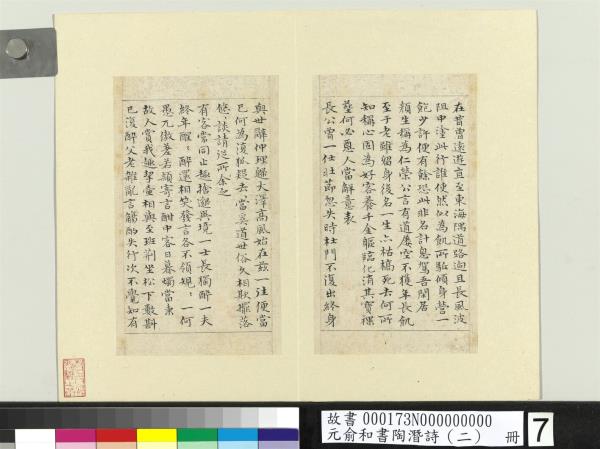 在昔曾遠遊直至東海隅道路逈且長風波
阻中塗此行誰使然似為飢所駈傾身營一
飽少許便有餘恐此非名計息駕歸閒居
顏生稱為仁榮公言有道屢空不獲年長飢
至于老雖留身後名一生亦枯槁死去何所
知稱心固為好客養千金軀臨化消其寶裸
葬何必惡人當解意表
長公曽一仕壯節忽失時杜門不復出終身
與世辭仲理歸大澤高風始在茲一往便當
已何為復狐疑去去當奚道世俗久相欺擺落
悠悠談請從所余之
有客常同止趣捨邈異境一士長獨醉一夫
終年醒醒醉還相笑發言各不領規規一何
愚兀傲差若頴寄言酣中客日暮燭當秉
故人賞我趣挈壺相與至班荊坐松下數斟
已復醉父老雜亂言觴酌失行次不覺知有
故書000173N000000000
元俞和書陶潛詩(二) 冊
7